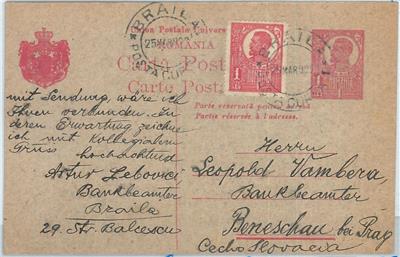 Union Postale Universelle
ROMANIA
Carta Poștală
Carte Postale
BRAILA
25 MAR 922
POSTA CURSA
1
BRAILA
MAR 922
1
Parte rezervată pentru adresă
Partie réservée à l'adresse.
mit Sendung, wäre ich
Ihnen verbunden. In
deren Erwartung zeichne
ich mit kollegialem
Gruss
hochachtend
Artur Lebovici
Bankbeamter
Braila
29. Str. Balcescu
Herrn
Leopold Vambera,
Bankbeamter
Beneschau bei Prag
Cecho Slovacia